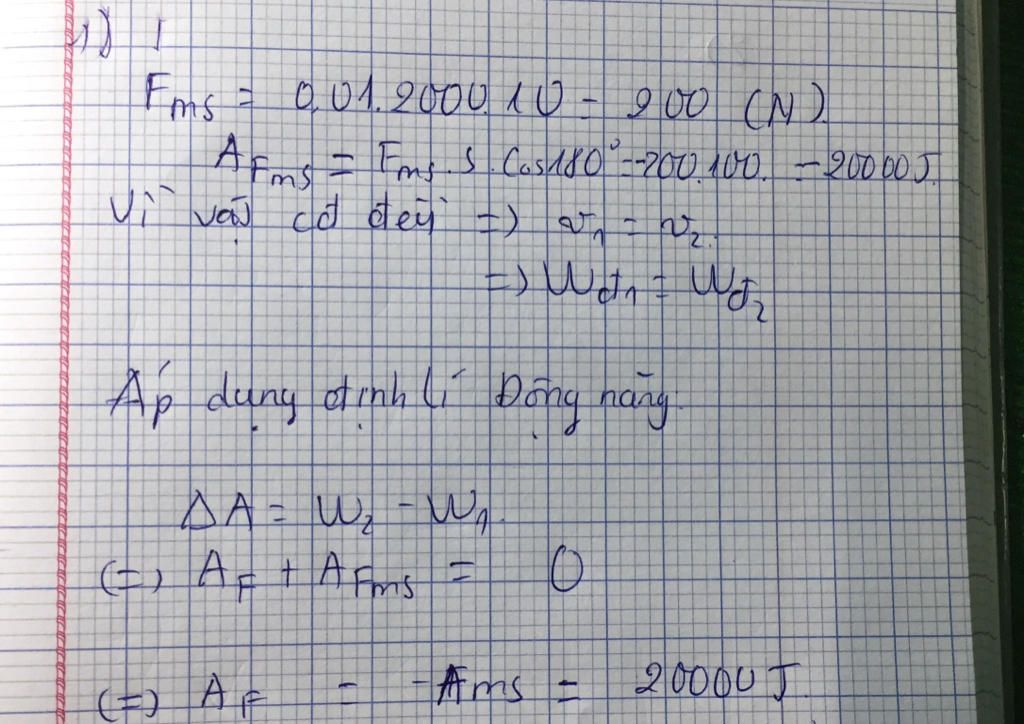 1) 1
Fms = 0,01.2000.10 = 200 (N).
AFms = Fms.s.Cos180° = -200.100. = -20000J.
Vì vật cđ đều => v1 = v2.
=> Wđ1 = Wđ2
Áp dụng định lí Động năng.
ΔA = W2 - W1.
(=) AF + AFms = 0
(=) AF = -Ams = 20000J.